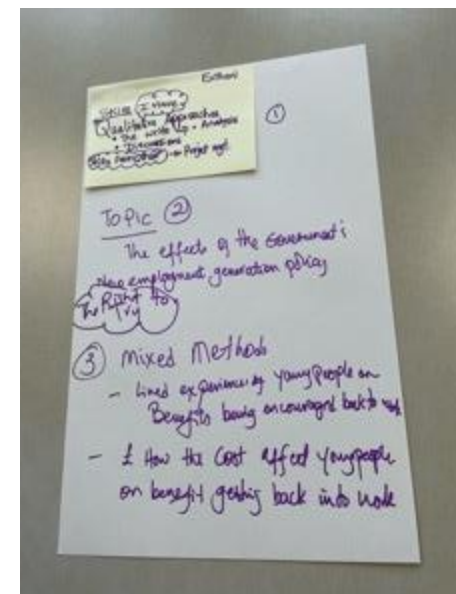 Esthani
Using I view
Qualitative Approaches
• The write up - Analysis
• Discussions
Project mgt.
①
Topic ②
The effects of the Government's
New employment generation policy
The Right to
Try
③ Mixed Methods
- Lived experience of young people on
Benefits being encouraged back to work
- £ How the cost affect young people
on benefit getting back into work